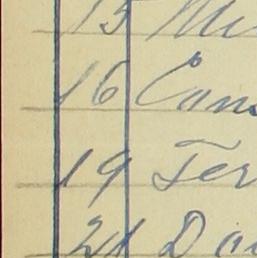 15 Mi
16 Cons
19 Ter
21 Da